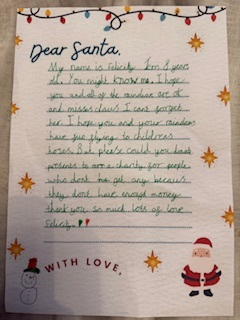 Dear Santa,
My name is Felicity I'm 8 years
old. You might know me. I hope
you and all of the reindeer are ok
and misses claus I cant forget
her. I hope you and your reindeers
have fun flying to childrens
houses. But please could you
presents to a charity for people
who dont get any because
they dont have enough money
thank you so much lots of love
Felicity
WITH LOVE,